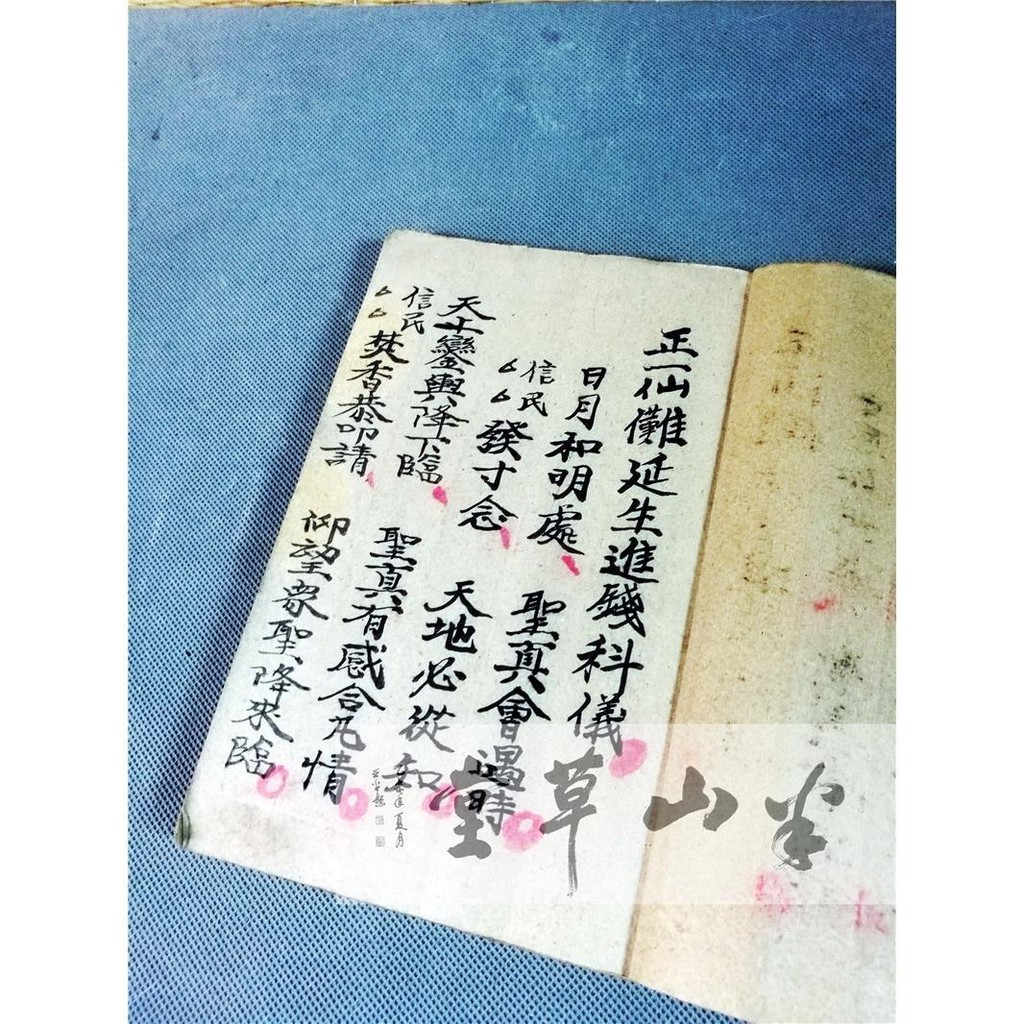 正一仙儺延生進錢科儀
日月和明處 聖真會遇時
信民厶厶發寸念 天地必從和
天上鑾輿降下臨 聖真有感合凡情
信民厶厶焚香恭叩請 仰望眾聖降來臨
半山草堂